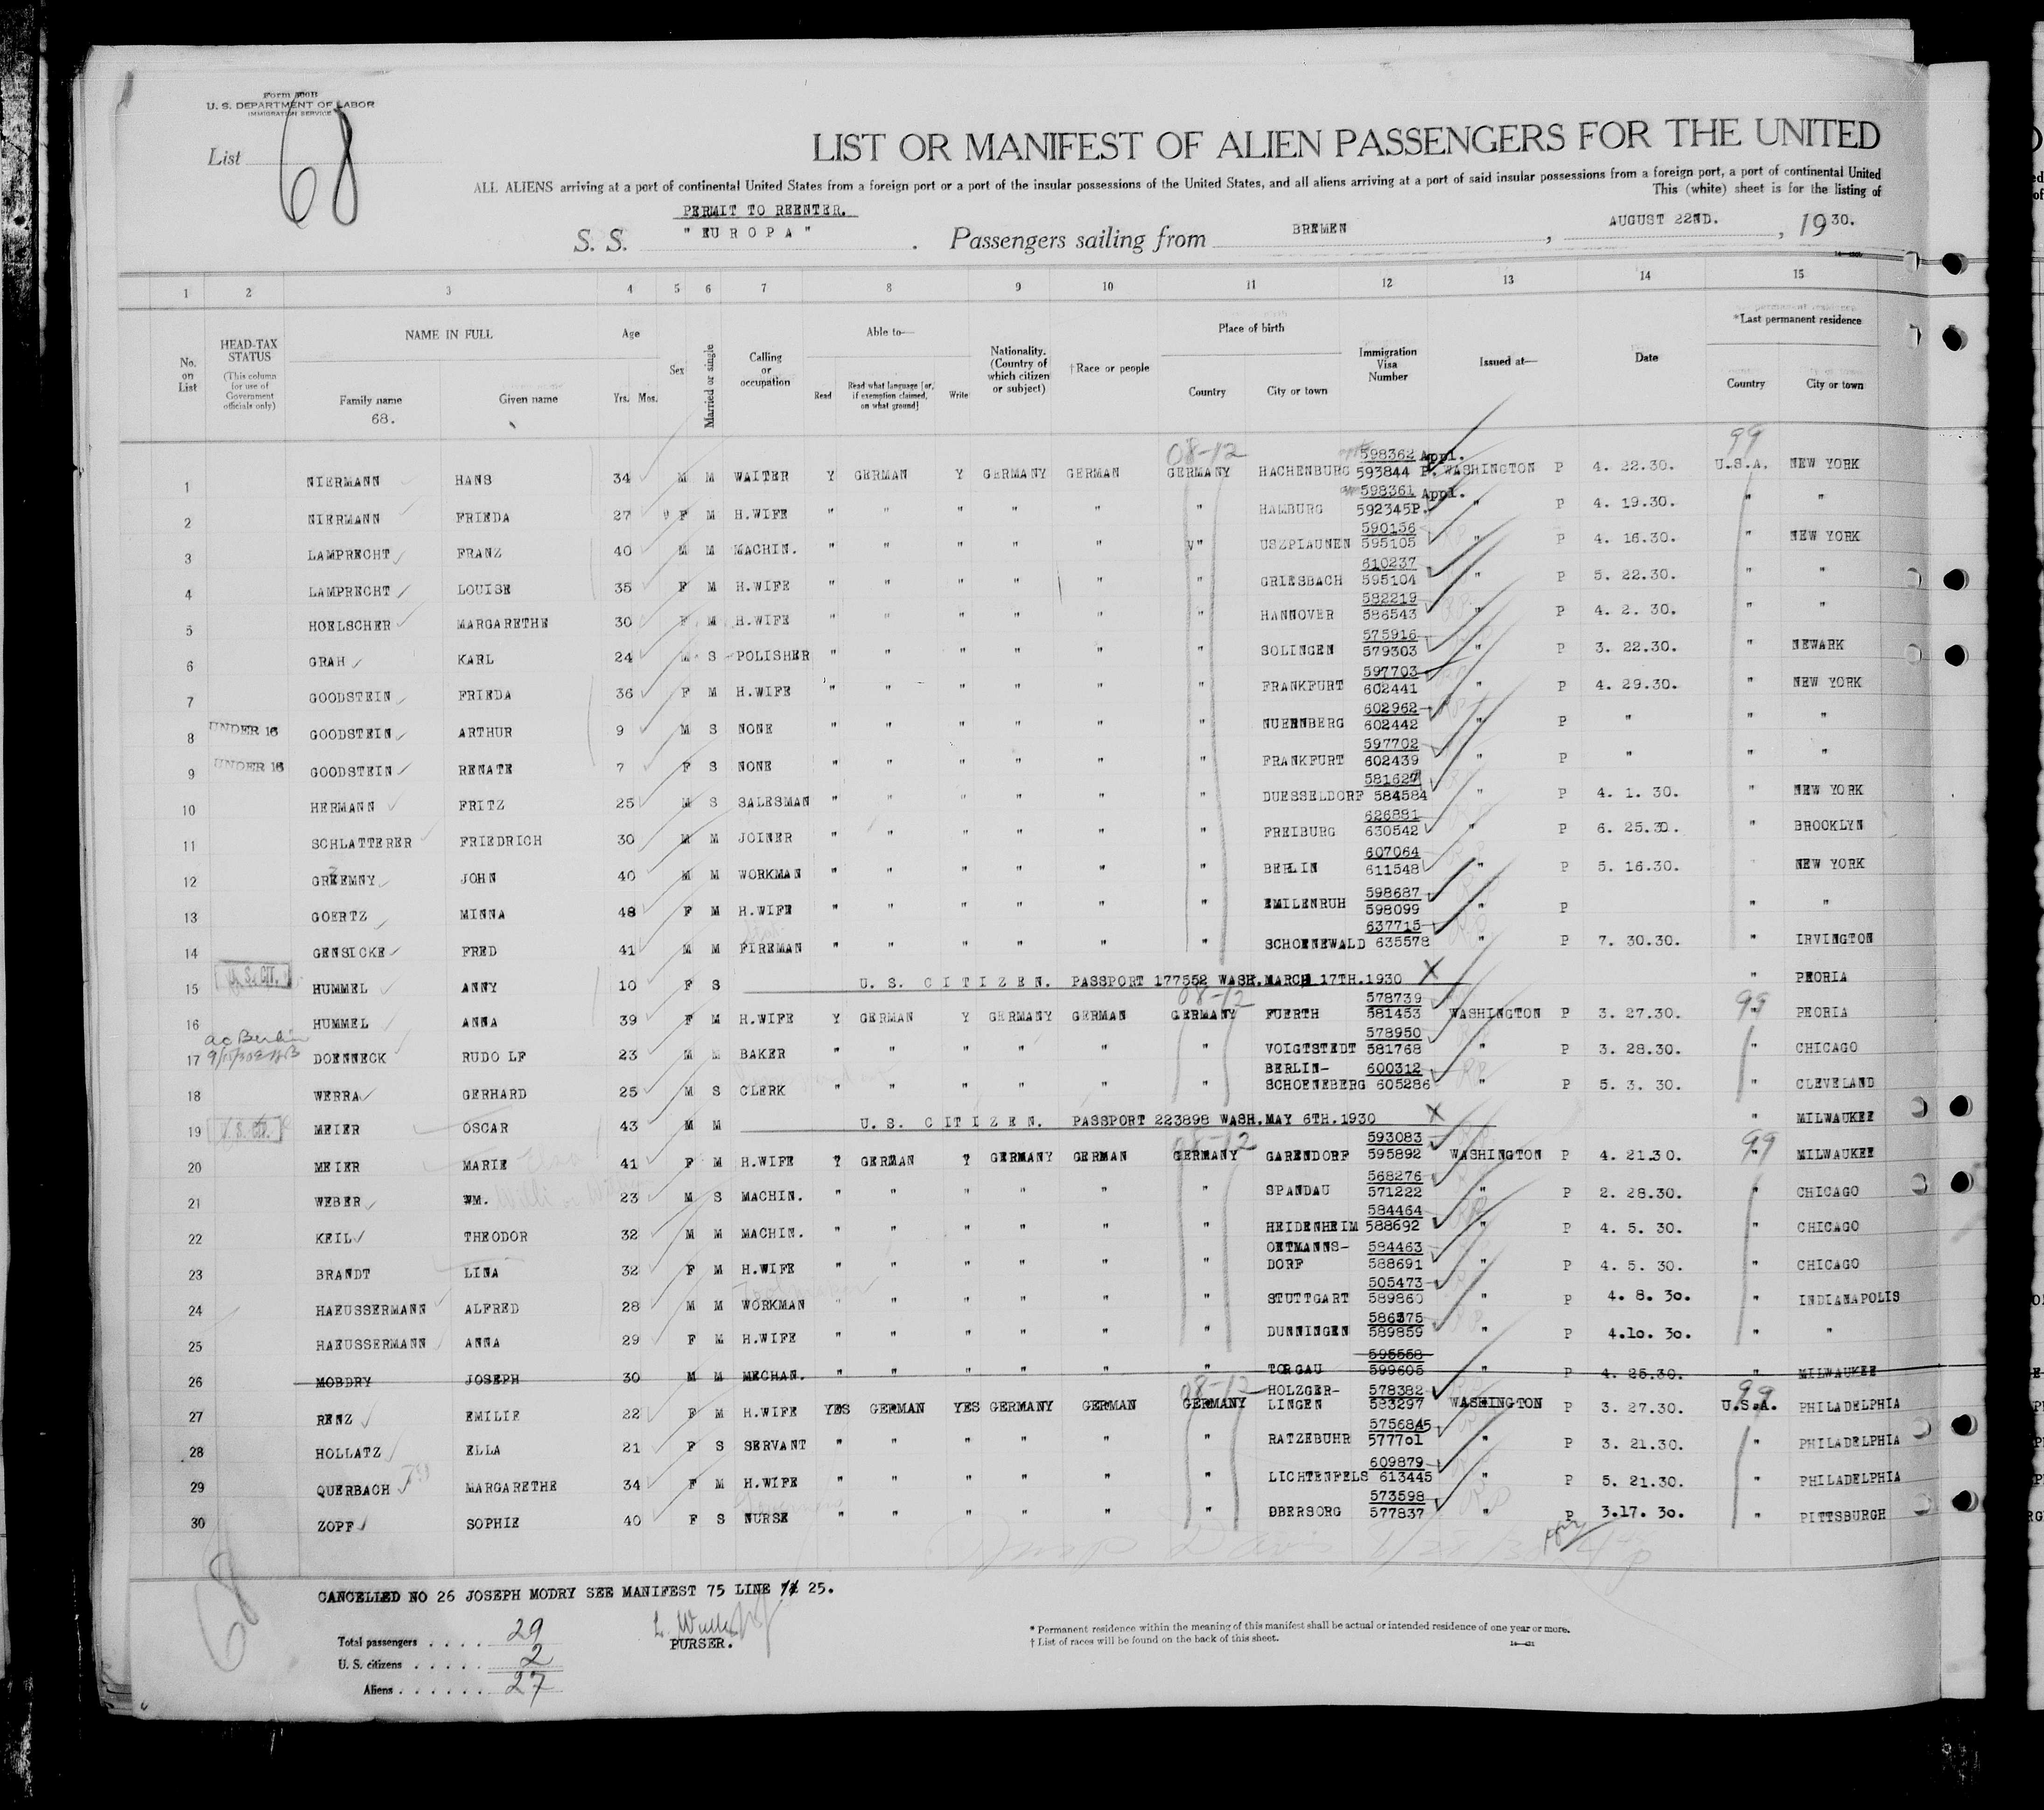 Form 500B
U. S. DEPARTMENT OF LABOR
IMMIGRATION SERVICE
List 68
LIST OR MANIFEST OF ALIEN PASSENGERS FOR THE UNITED
ALL ALIENS arriving at a port of continental United States from a foreign port or a port of the insular possessions of the United States, and all aliens arriving at a port of said insular possessions from a foreign port, a port of continental United
This (white) sheet is for the listing of
PERMIT TO REENTER.
S. S. " EUROPA " . Passengers sailing from BREMEN , AUGUST 22ND. , 1930.
1 2 3 4 5 6 7 8 9 10 11 12 13 14 15
No. on List
HEAD-TAX STATUS (This column for use of Government officials only)
NAME IN FULL
Family name Given name
68.
Age Yrs. Mos.
Sex
Married or single
Calling or occupation
Able to—
Read Read what language [or, if exemption claimed, on what ground] Write
Nationality. (Country of which citizen or subject)
†Race or people
Place of birth
Country City or town
Immigration Visa Number
Issued at—
Date
*Last permanent residence
Country City or town
08-12 598362 Appl. 99
1 NIERMANN HANS 34 M M WAITER Y GERMAN Y GERMANY GERMAN GERMANY HACHENBURG 593844 P. WASHINGTON P 4. 22.30. U.S.A. NEW YORK
598361 Appl.
2 NIERMANN FRIEDA 27 F M H.WIFE " " " " " " HAMBURG 592345P. " P 4. 19.30. " "
590156
3 LAMPRECHT FRANZ 40 M M MACHIN. " " " " " " USZPIAUNEN 595105 " P 4. 16.30. " NEW YORK
610237
4 LAMPRECHT LOUISE 35 F M H.WIFE " " " " " " GRIESBACH 595104 " P 5. 22.30. " "
582219
5 HOELSCHER MARGARETHE 30 F M H.WIFE " " " " " " HANNOVER 586543 " P 4. 2. 30. " "
575916
6 GRAH KARL 24 M S POLISHER " " " " " " SOLINGEN 579303 " P 3. 22.30. " NEWARK
597703
7 GOODSTEIN FRIEDA 36 F M H.WIFE " " " " " " FRANKFURT 602441 " P 4. 29.30. " NEW YORK
602962
8 UNDER 16 GOODSTEIN ARTHUR 9 M S NONE " " " " " " NUERNBERG 602442 " P " " "
597702
9 UNDER 16 GOODSTEIN RENATE 7 F S NONE " " " " " " FRANKFURT 602439 P " " "
581627
10 HERMANN FRITZ 25 M S SALESMAN " " " " " " DUESSELDORF 584584 " P 4. 1. 30. " NEW YORK
626881
11 SCHLATTERER FRIEDRICH 30 M M JOINER " " " " " " FREIBURG 630542 " P 6. 25.30. " BROOKLYN
607064
12 JOHN 40 M M WORKMAN " " " " " " BERLIN 611548 " P 5. 16.30. NEW YORK
598687
13 GOERTZ MINNA 48 F M H.WIFE " " " " " " EMILENRUH 598099 " P " "
637715
14 GENSICKE FRED 41 M M FIREMAN " " " " " " SCHOENEWALD 635578 " P 7. 30.30. " IRVINGTON
15 U. S. CIT. HUMMEL ANNY 10 F S U. S. CITIZEN. PASSPORT 177552 WASH.MARCH 17TH.1930 X " PEORIA
08-12 578739 99
16 HUMMEL ANNA 39 F M H.WIFE Y GERMAN Y GERMANY GERMAN GERMANY FUERTH 581453 WASHINGTON P 3. 27.30. " PEORIA
578950
17 DOENNECK RUDOLF 23 M M BAKER " " " " " " VOIGTSTEDT 581768 " P 3. 28.30. " CHICAGO
BERLIN- 600312
18 WERRA GERHARD 25 M S CLERK " " " " " " SCHOENEBERG 605286 " P 5. 3. 30. " CLEVELAND
19 U. S. CIT. MEIER OSCAR 43 M M U. S. CITIZEN. PASSPORT 223898 WASH.MAY 6TH.1930 X " MILWAUKEE
08-12 593083 99
20 MEIER MARIE 41 F M H.WIFE Y GERMAN Y GERMANY GERMAN GERMANY GARENDORF 595892 WASHINGTON P 4. 21.30. " MILWAUKEE
568276
21 WEBER WM. 23 M S MACHIN. " " " " " " SPANDAU 571222 " P 2. 28.30. " CHICAGO
584464
22 KEIL THEODOR 32 M M MACHIN. " " " " " " HEIDENHEIM 588692 " P 4. 5. 30. " CHICAGO
OETMANNS- 584463
23 BRANDT LINA 32 F M H.WIFE " " " " " " DORF 588691 " P 4. 5. 30. " CHICAGO
505473
24 HAEUSSERMANN ALFRED 28 M M WORKMAN " " " " " " STUTTGART 589860 " P 4. 8. 30. " INDIANAPOLIS
25 HAEUSSERMANN ANNA 29 F M H.WIFE " " " " " " DUNNINGEN 589859 " P 4.10. 30. " "
595558
26 MOBDRY JOSEPH 30 M M MECHAN. " " " " " " TORGAU 599605 " P 4. 25.30. " MILWAUKEE
08-12 HOLZGER- 578382 99
27 RENZ EMILIE 22 F M H.WIFE YES GERMAN YES GERMANY GERMAN GERMANY LINGEN 583297 WASHINGTON P 3. 27.30. U.S.A. PHILADELPHIA
28 HOLLATZ ELLA 21 F S SERVANT " " " " " " RATZEBUHR 577701 " P 3. 21.30. " PHILADELPHIA
609879
29 QUERBACH MARGARETHE 34 F M H.WIFE " " " " " " LICHTENFELS 613445 " P 5. 21.30. " PHILADELPHIA
573598
30 ZOPF SOPHIE 40 F S NURSE " " " " " " OBERSORG 577837 " P 3.17. 30. " PITTSBURGH
68
CANCELLED NO 26 JOSEPH MODRY SEE MANIFEST 75 LINE 25.
Total passengers . . . . 29
U. S. citizens . . . . . 2
Aliens . . . . . . 27
PURSER.
* Permanent residence within the meaning of this manifest shall be actual or intended residence of one year or more.
† List of races will be found on the back of this sheet.